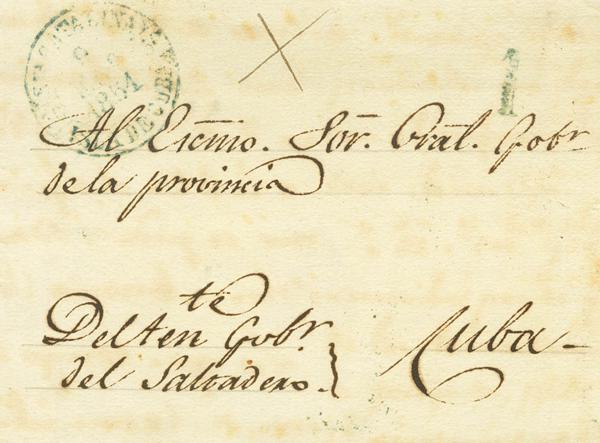 1
Al Ecmo. Sor. Gral. Gobr
de la provincia
Del Ten te Gobr
del Saltadero.
Cuba